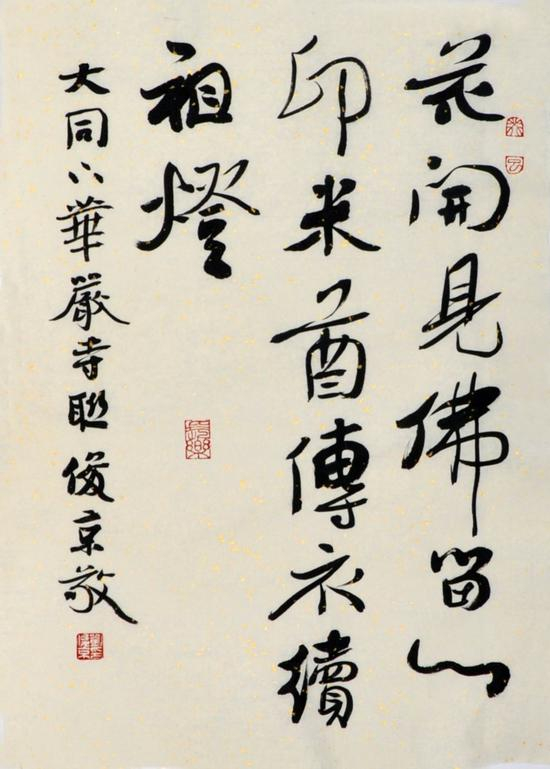 花開見佛留心
印米酋傳衣續
祖燈
大同下華嚴寺聯 俊京敬